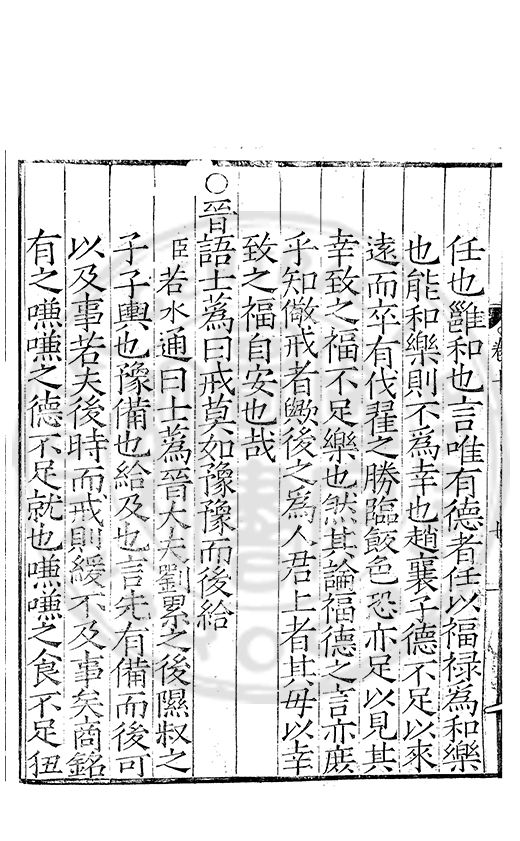 任也雝和也言唯有德者任以福祿為和樂
也能和樂則不為幸也趙襄子德不足以來
遠而卒有伐翟之勝臨餀色恐亦足以見其
幸致之福不足樂也然其論福德之言亦庶
乎知儆戒者歟後之為人君上者其毋以幸
致之福自安也哉
○晉語士蒍曰戒莫如豫豫而後給
臣若水通曰士蒍晉大夫劉累之後隰叔之
子子輿也豫備也給及也言先有備而後可
以及事若夫後時而戒則緩不及事矣商銘
有之嗛嗛之德不足就也嗛嗛之食不足狃
卷十